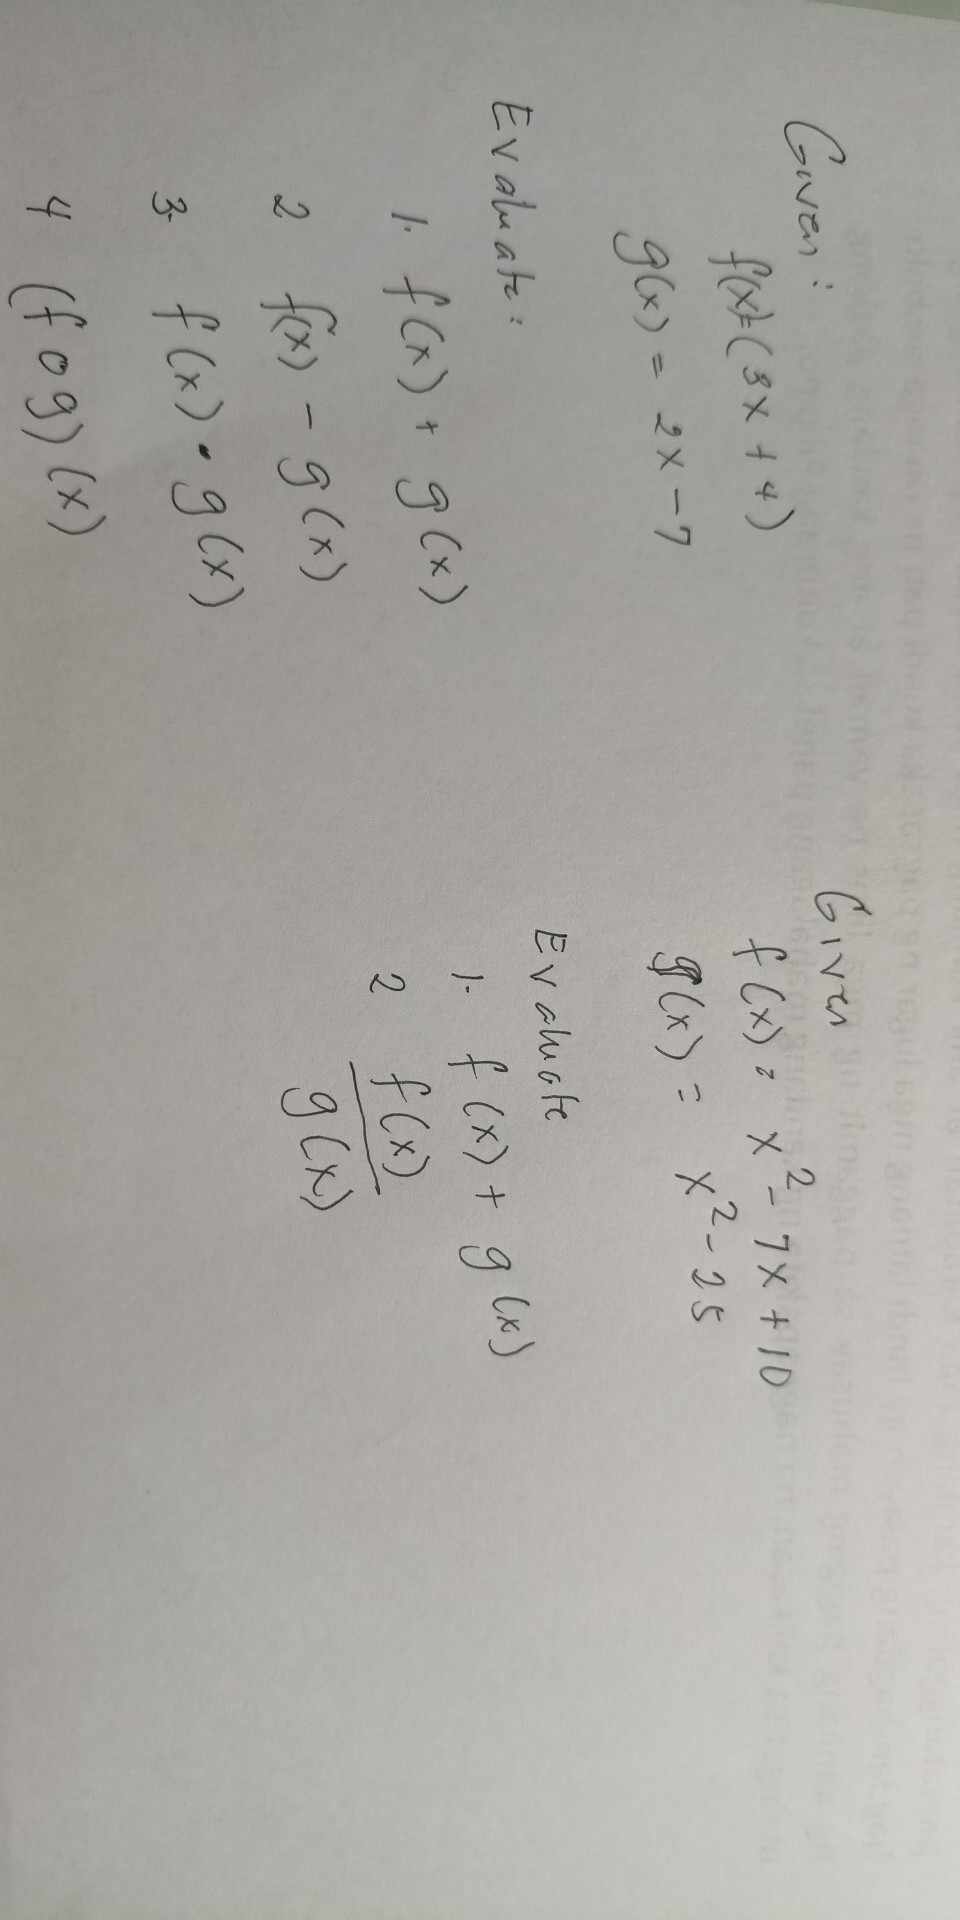 Given:
f(x)=(3x+4)
g(x) = 2x-7
Evaluate:
1. f(x) + g(x)
2 f(x) - g(x)
3. f(x) • g(x)
4 (fog)(x)
Given
f(x) = x²-7x+10
g(x) = x²-25
Evaluate
1. f(x) + g(x)
2 f(x)
g(x)